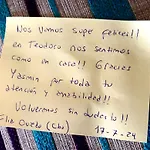 Nos vamos supe felices!!
en Teodoro nos sentimos
como en casa!! Gracias
Yasmin por toda tu
atención y amabilidad!!
Volveremos sin dudarlo!!
Oviedo (Cba) 17-2-24